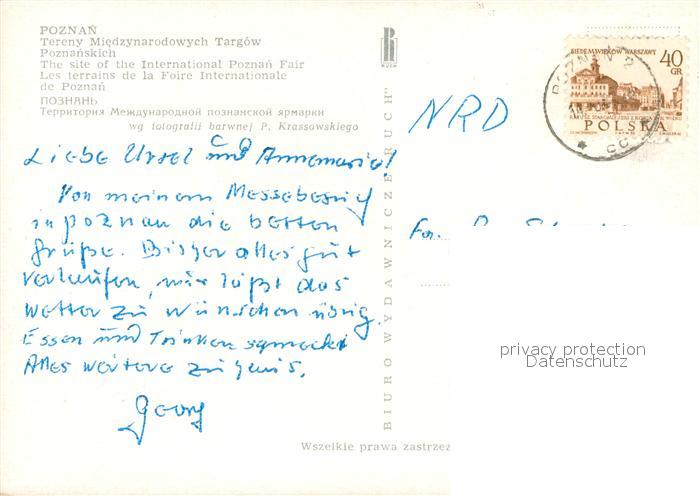 POZNAŃ
Tereny Międzynarodowych Targów
Poznańskich
The site of the International Poznań Fair
Les terrains de la Foire Internationale
de Poznań
ПОЗНАНЬ
Территория Международной познанской ярмарки
wg fotografii barwnej P. Krassowskiego
Liebe Ursel und Annemarie!
Von meinem Messebesuch
in Poznan die besten
Grüße. Bisher alles gut
verlaufen, nur läßt das
Wetter zu wünschen übrig.
Essen und Trinken schmeckt
Alles weitere zu Haus.
Georg
BIURO WYDAWNICZE „RUCH"
Wszelkie prawa zastrzeż
NRD
Fam.
SIEDEM WIEKÓW WARSZAWY
40
GR
POLSKA
POZNAŃ 2
privacy protection
Datenschutz